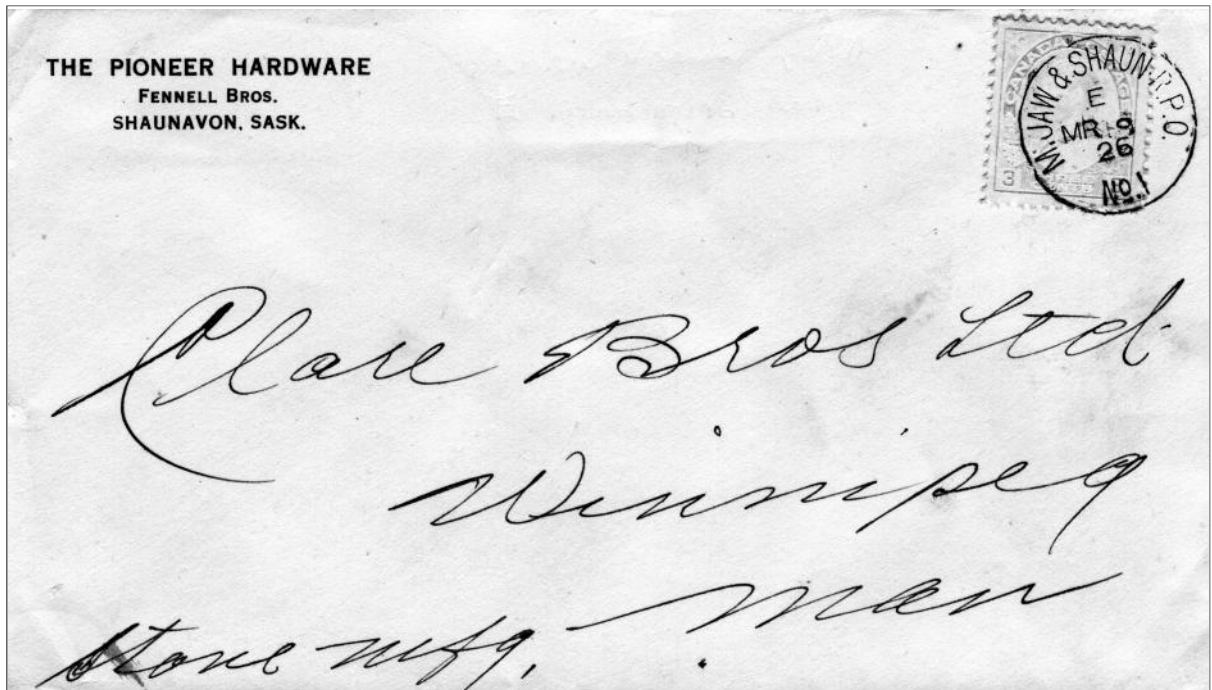 THE PIONEER HARDWARE
FENNELL BROS.
SHAUNAVON, SASK.
CANADA
3
M.JAW & SHAUN.R.P.O.
E
MR
26
No.1
Clare Bros Ltd.
Winnipeg
Man
Stove mfg.